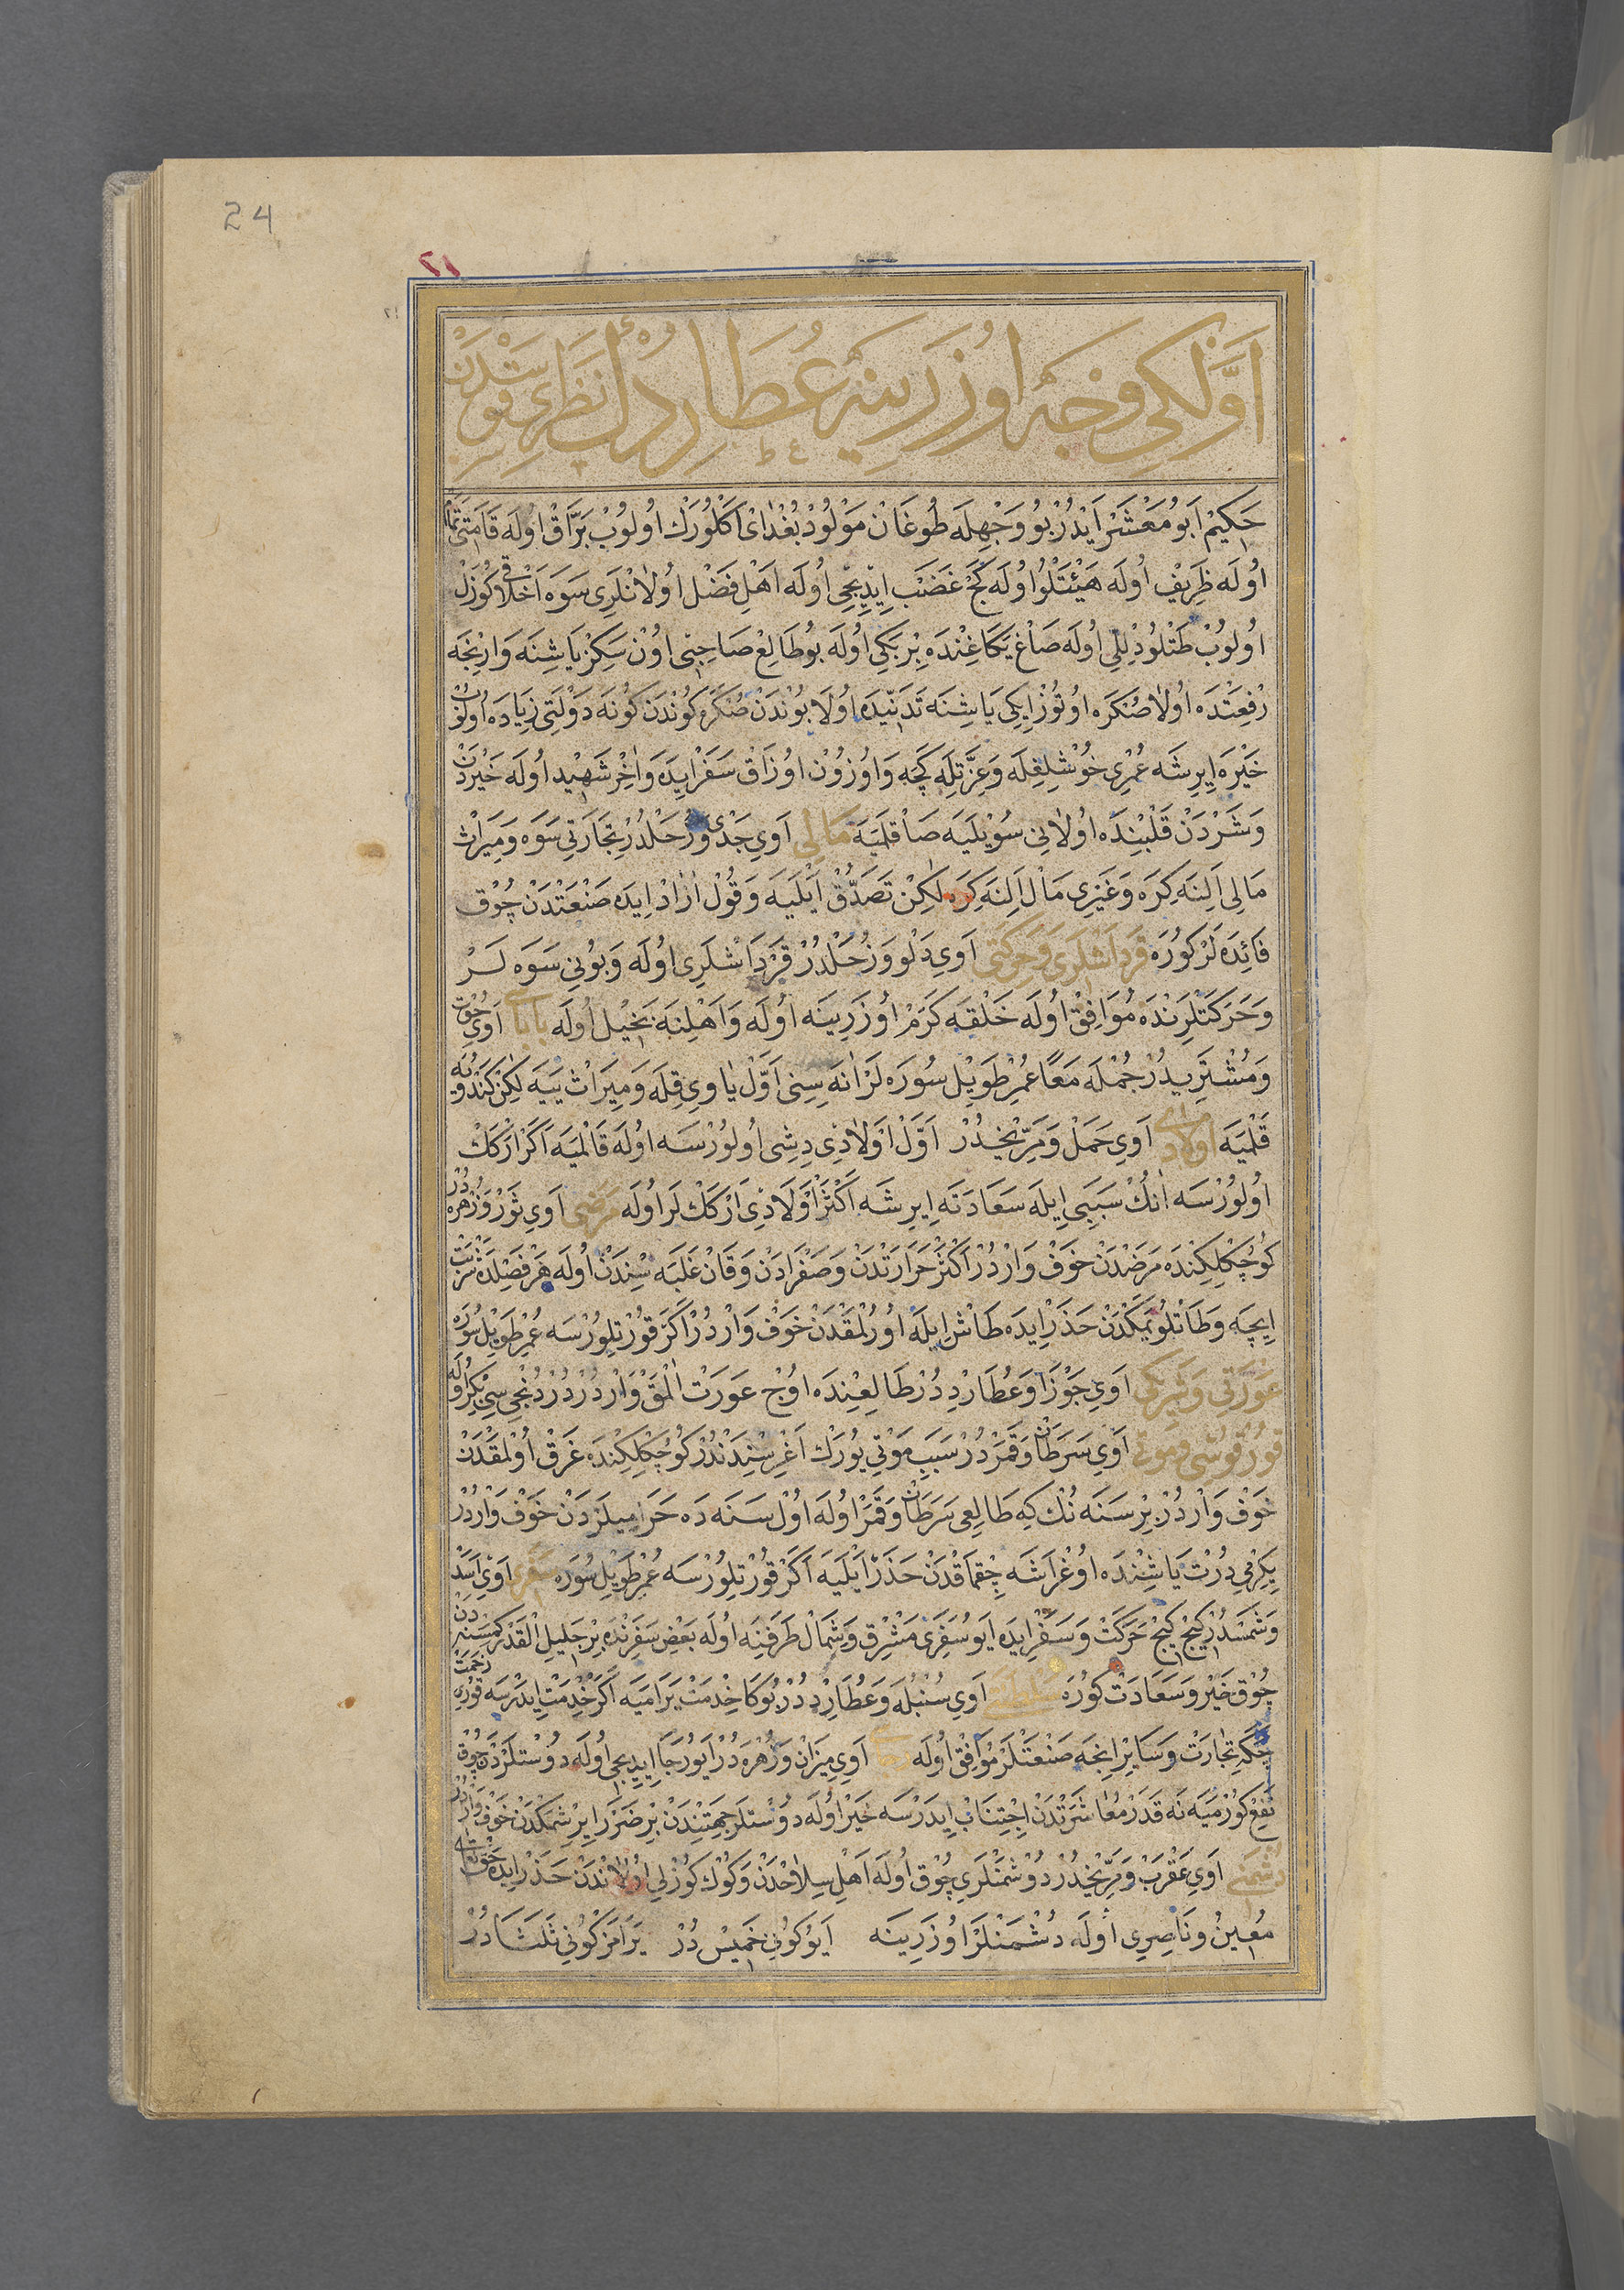 24
٢١
اَوَّلْكِي وَجْه اُوزَرِينَه عُطَارِدُكْ نَظَرِي قَوْسْدَنْ
حَكِيمْ اَبُو مَعْشَرْ اَيْدُرْ بُو وَجْهِلَه طُوغَانْ مَوْلُودْ بُغْدَاىْ اَكْلُورَكْ اُولُوبْ بَرَّاقْ اُولَه قَامَتِى
اُولَه ظَرِيفْ اُولَه هَيْئَتْلُو اُولَه كَجْ غَضَبْ اِيدِيجِى اُولَه اَهْلِ فَضْل اُولاَنْلَرِى سَوَه اَخْلاَقِى كُوزَلْ
اُولُوبْ طَتْلُو دِلْلِى اُولَه صَاغْ يَكَاغِنْدَه بِرْ بَكِى اُولَه بُو طَالِعْ صَاحِبِى اُونْ سَكِزْ يَاشِنَه وَارِنْجَه
رِفْعَتْدَه اُولاَ صُنْكَرَه اُوتُوزْ اِيكِى يَاشِنَه تَدَنِّيدَه اُولَا بُونْدَنْ صُنْكَرَه كُونْدَنْ كُونَه دَوْلَتِى زِيَادَه اُولُوبْ
خَيْرَه اِيرِشَه عُمْرِى خُوشْلِغِلَه وَعِزَّتِلَه كَچَه وَاُوزُونْ اُوزَاقْ سَفَرْ اِيدَه وَاٰخِرْ شَهِيدْ اُولَه خَيْردَنْ
وَشَرْدَنْ قَلْبِنْدَه اُولاَنِى سُويْلَيَه صَاقْلَمَيَه مَالِى اَوِى جَدْى وَزُحَلْدُرْ تِجَارَتِى سَوَه وَمِيرَاثْ
مَالِى اَلِنَه كِرَه وَغَيْرِى مَالْ اَلِنَه كِرَه لٰكِنْ تَصَدُّقْ اَيْلَيَه وَقُولْ اٰزَادْ اِيدَه صَنْعَتْدَنْ چُوقْ
فَائِدَه لَرْ كُورَه قَرِدَاشْلَرِى وَحَرَكَتِى اَوِى دَلْو وَزُحَلْدُرْ قَرِدَاشْلَرِى اُولَه وَبُونِى سَوَه لَرْ
وَحَرَكَتْلَرِنْدَه مُوَافِقْ اُولَه خَلْقَه كَرَمْ اُوزَرِينَه اُولَه وَاَهْلِنَه بَخِيلْ اُولَه بَابَاسِى اَوِى حُوتْ
وَمُشْتَرِيدُرْ جُمْلَه مَعًا عُمْرِ طَوِيلْ سُورَه لَرْ اَنَه سِنِى اَوَّلْ يَاوِى قِلَه وَمِيرَاثْ يَيَه لٰكِنْ كَنْدُويَه
قَلْمَيَه اَوْلاَدِى اَوِى حَمَلْ وَمِرِّيخْدُرْ اَوَّلْ اَوْلاَدِى دِشِى اُولُورْسَه اُولَه قَالْمَيَه اَكَرْ اَرْكَكْ
اُولُورْسَه اٰنُكْ سَبَبِى اِيلَه سَعَادَتَه اِيرِشَه اَكْثَرْ اَوْلَادِى اَرْكَكْ لَرْ اُولَه مَرَضِى اَوِى ثَوْرْ وَزُهْرَه دُرْ
كُوچُكْلِكِنْدَه مَرَضْدَنْ خَوْفْ وَارْدُرْ اَكْثَرْ حَرَارَتْدَنْ وَصَفْرَادَنْ وَقَانْ غَلَبَه سِنْدَنْ اُولَه هَرْ فَصِلْدَه شَرْبَتْ
اِيچَه وَطَاتْلُو يِمَكْدَنْ حَذَرْ اِيدَه طَاشْ اِيلَه اُورُلْمَقْدَنْ خَوْفْ وَارْدُرْ اَكَرْ قُورْتِلُورْسَه عُمْرِ طَوِيلْ سُورَه
عَوْرَتِى وَشَرِيكِى اَوِى جَوْزَا وَعُطَارِدْدُرْ طَالِعِنْدَه اُوچْ عَوْرَتْ اٰلْمَقْ وَارْدُرْ دُرْدُنْجِى سِى بِكِرْ اُولَه
قُورْقُوسِى وَمَوْتِى اَوِى سَرَطَانْ وَقَمَرْدُرْ سَبَبِ مَوْتِى يُورَكْ اَغْرِيسِنْدَنْدُرْ كُوچُكْلِكِنْدَه غَرْقْ اُولْمَقْدَنْ
خَوْفْ وَارْدُرْ بِرْ سَنَه نُكْ كِه طَالِعِى سَرَطَانْ وَقَمَرْ اُولَه اُولْ سَنَه دَه حَرَامِيلَرْدَنْ خَوْفْ وَارْدُرْ
يِكِرْمِى دُرْتْ يَاشِنْدَه اُوغْرَاشَه چِقْمَاقْدَنْ حَذَرْ اَيْلَيَه اَكَرْ قُورْتِلُورْسَه عُمْرِ طَوِيلْ سُورَه سَفَرِى اَوِى اَسَدْ
وَشَمْسْدُرْ كِيجْ كِيجْ حَرَكَتْ وَسَفَرْ اِيدَه اَيُو سَفَرِى مَشْرِقْ وَشِمَالْ طَرَفِنَه اُولَه بَعْضِ سَفَرِنْدَه بِرْ جَلِيلِ الْقَدْرْ كِمْسَنَه دَنْ
چُوقْ خَيْرْ وَسَعَادَتْ كُورَه اَوِى سُنْبُلَه وَعُطَارِدْدُرْ بُوكَا خِدْمَتْ يَرَامَيَه اَكَرْ خِدْمَتْ اِيدَرْسَه قُورِى زَحْمَتْ
چَكَه تِجَارَتْ وَسَايِرْ اِينْجَه صَنْعَتْلَرْ مُوَافِقْ اُولَه اَوِى مِيزَانْ وَزُهْرَه دُرْ اَيُو رَجَا اِيدِيجِى اُولَه دُوسْتْلَرْدَنْ چُوقْ
نَفِعْ كُورْمَيَه نَه قَدَرْ مُعَاشَرَتْدَنْ اِجْتِنَابْ اِيدَرْسَه خَيْرْ اُولَه دُوسْتْلَرْ جِهَتِنْدَنْ بِرْ ضَرَرْ اِيرِشْمَكْدَنْ خَوْفْ وَارْدُرْ
دُشْمَنِى اَوِى عَقْرَبْ وَمِرِّيخْدُرْ دُوشْمَنْلَرِى چُوقْ اُولَه اَهْلِ سِلاَحْدَنْ وَكُوكْ كُوزْلِى اُولاَنْدَنْ حَذَرْ اِيدَه حَقْ تَعَالٰى
مُعِينْ وَنَاصِرِى اُولَه دُشْمَنْلَرْ اُوزَرِينَه اَيُو كُونِى خَمِيسْ دُرْ يَرَامَزْ كُونِى ثَلَثَا دُرْ